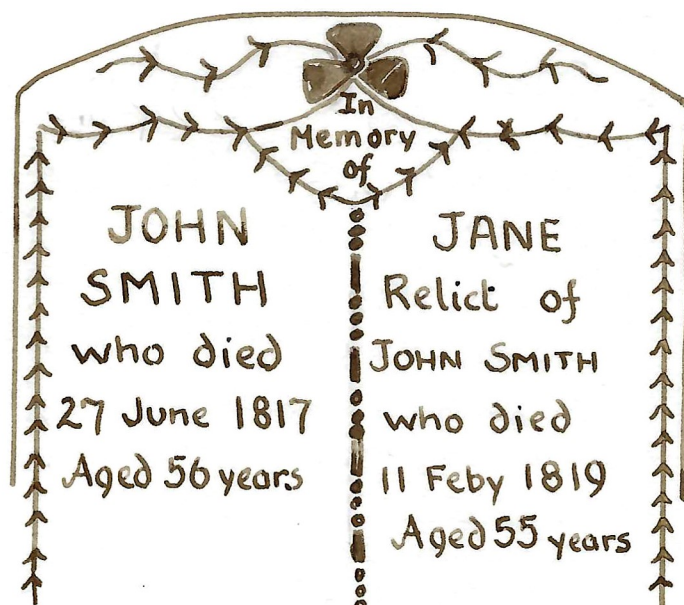 In
Memory
of
JOHN
SMITH
who died
27 June 1817
Aged 56 years
JANE
Relict of
JOHN SMITH
who died
11 Feby 1819
Aged 55 years